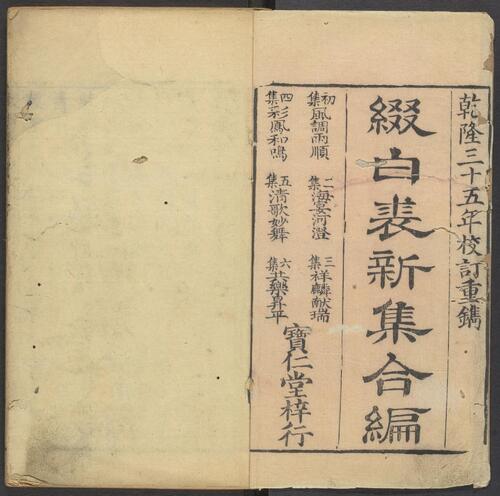 乾隆三十五年校訂重鐫
綴白裘新集合編
初集風調雨順
二集海宴河澄
三集祥麟献瑞
四集彩鳳和鳴
五集清歌妙舞
六集共樂昇平
寳仁堂梓行